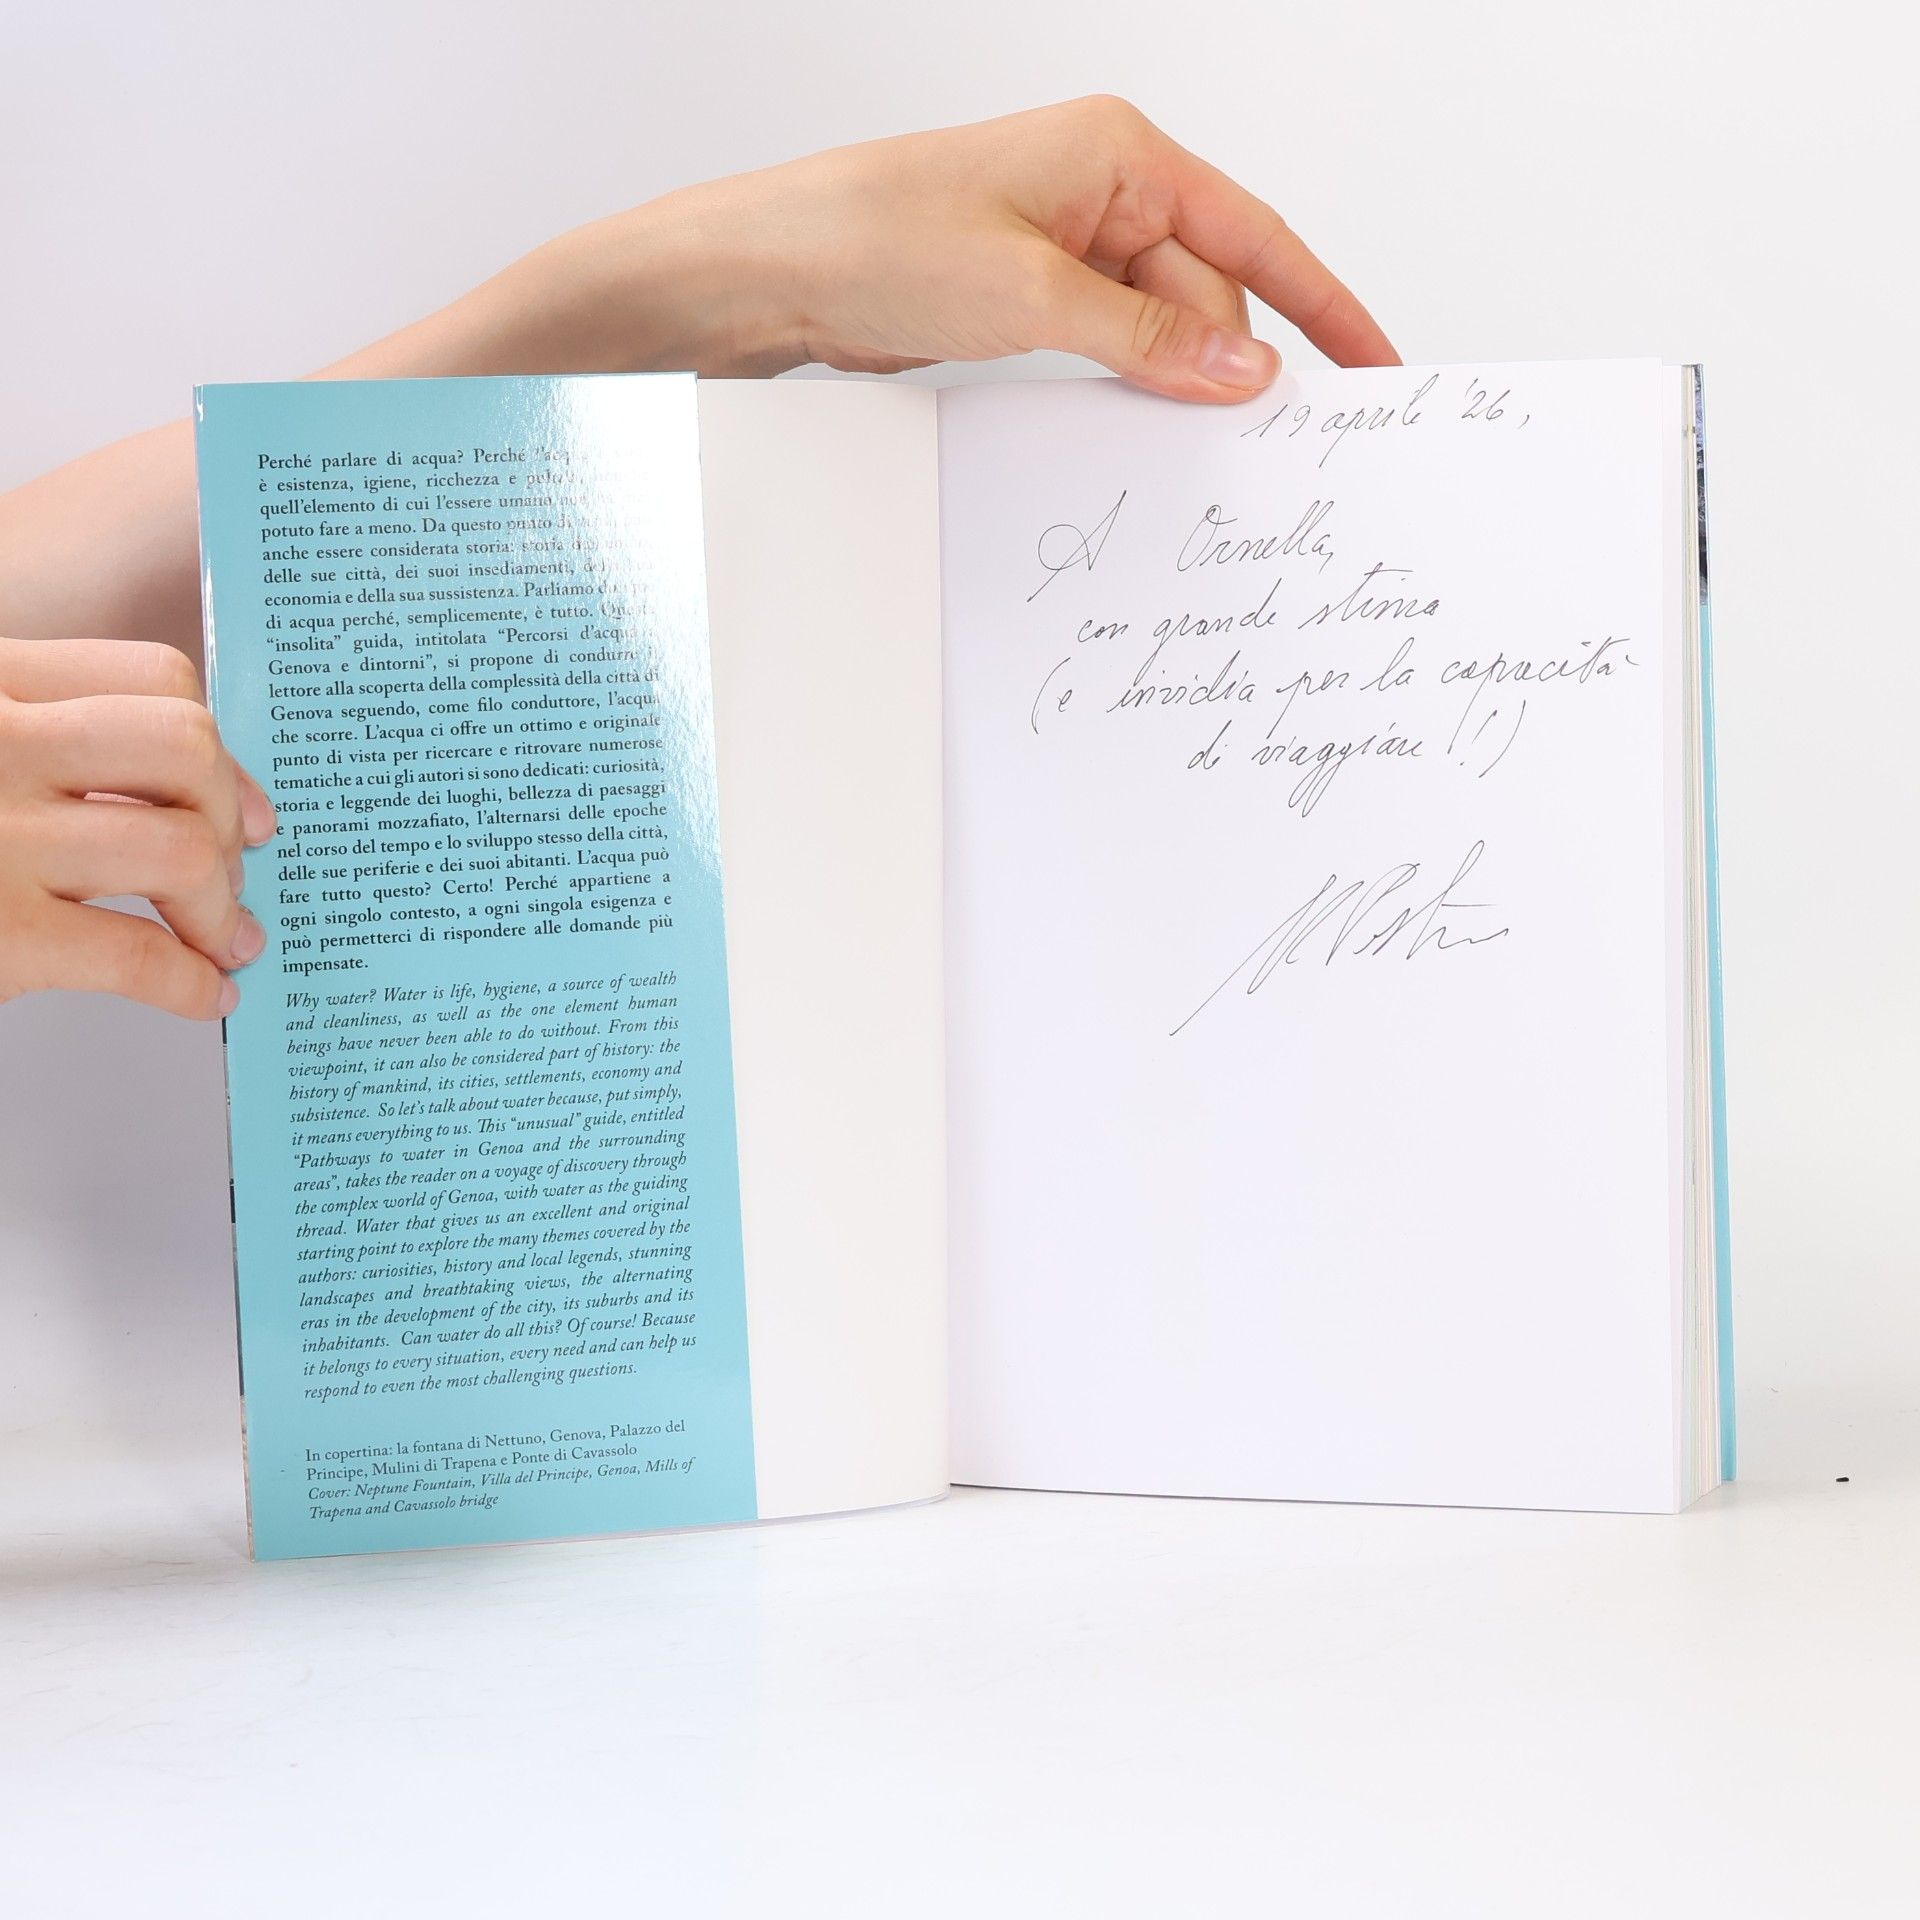 Perché parlare di acqua? Perché l'acqua
è esistenza, igiene, ricchezza e
quell'elemento di cui l'essere umano non ha mai
potuto fare a meno. Da questo punto di
anche essere considerata storia: storia
delle sue città, dei suoi insediamenti, della sua
economia e della sua sussistenza. Parliamo
di acqua perché, semplicemente, è tutto. Questa
“insolita” guida, intitolata “Percorsi d'acqua
Genova e dintorni”, si propone di condurre il
lettore alla scoperta della complessità della città di
Genova seguendo, come filo conduttore, l'acqua
che scorre. L'acqua ci offre un ottimo e originale
punto di vista per ricercare e ritrovare numerose
tematiche a cui gli autori si sono dedicati: curiosità,
storia e leggende dei luoghi, bellezza di paesaggi
e panorami mozzafiato, l'alternarsi delle epoche
nel corso del tempo e lo sviluppo stesso della città,
delle sue periferie e dei suoi abitanti. L'acqua può
fare tutto questo? Certo! Perché appartiene a
ogni singolo contesto, a ogni singola esigenza e
può permetterci di rispondere alle domande più
impensate.
Why water? Water is life, hygiene, a source of wealth
and cleanliness, as well as the one element human
beings have never been able to do without. From this
viewpoint, it can also be considered part of history: the
history of mankind, its cities, settlements, economy and
subsistence. So let's talk about water because, put simply,
it means everything to us. This “unusual” guide, entitled
“Pathways to water in Genoa and the surrounding
areas”, takes the reader on a voyage of discovery through
the complex world of Genoa, with water as the guiding
thread. Water that gives us an excellent and original
starting point to explore the many themes covered by the
authors: curiosities, history and local legends, stunning
landscapes and breathtaking views, the alternating
eras in the development of the city, its suburbs and its
inhabitants. Can water do all this? Of course! Because
it belongs to every situation, every need and can help us
respond to even the most challenging questions.
In copertina: la fontana di Nettuno, Genova, Palazzo del
Principe, Mulini di Trapena e Ponte di Cavassolo
Cover: Neptune Fountain, Villa del Principe, Genoa, Mills of
Trapena and Cavassolo bridge
19 aprile '26,
A Ornella,
con grande stima
(e invidia per la capacità
di viaggiare!)